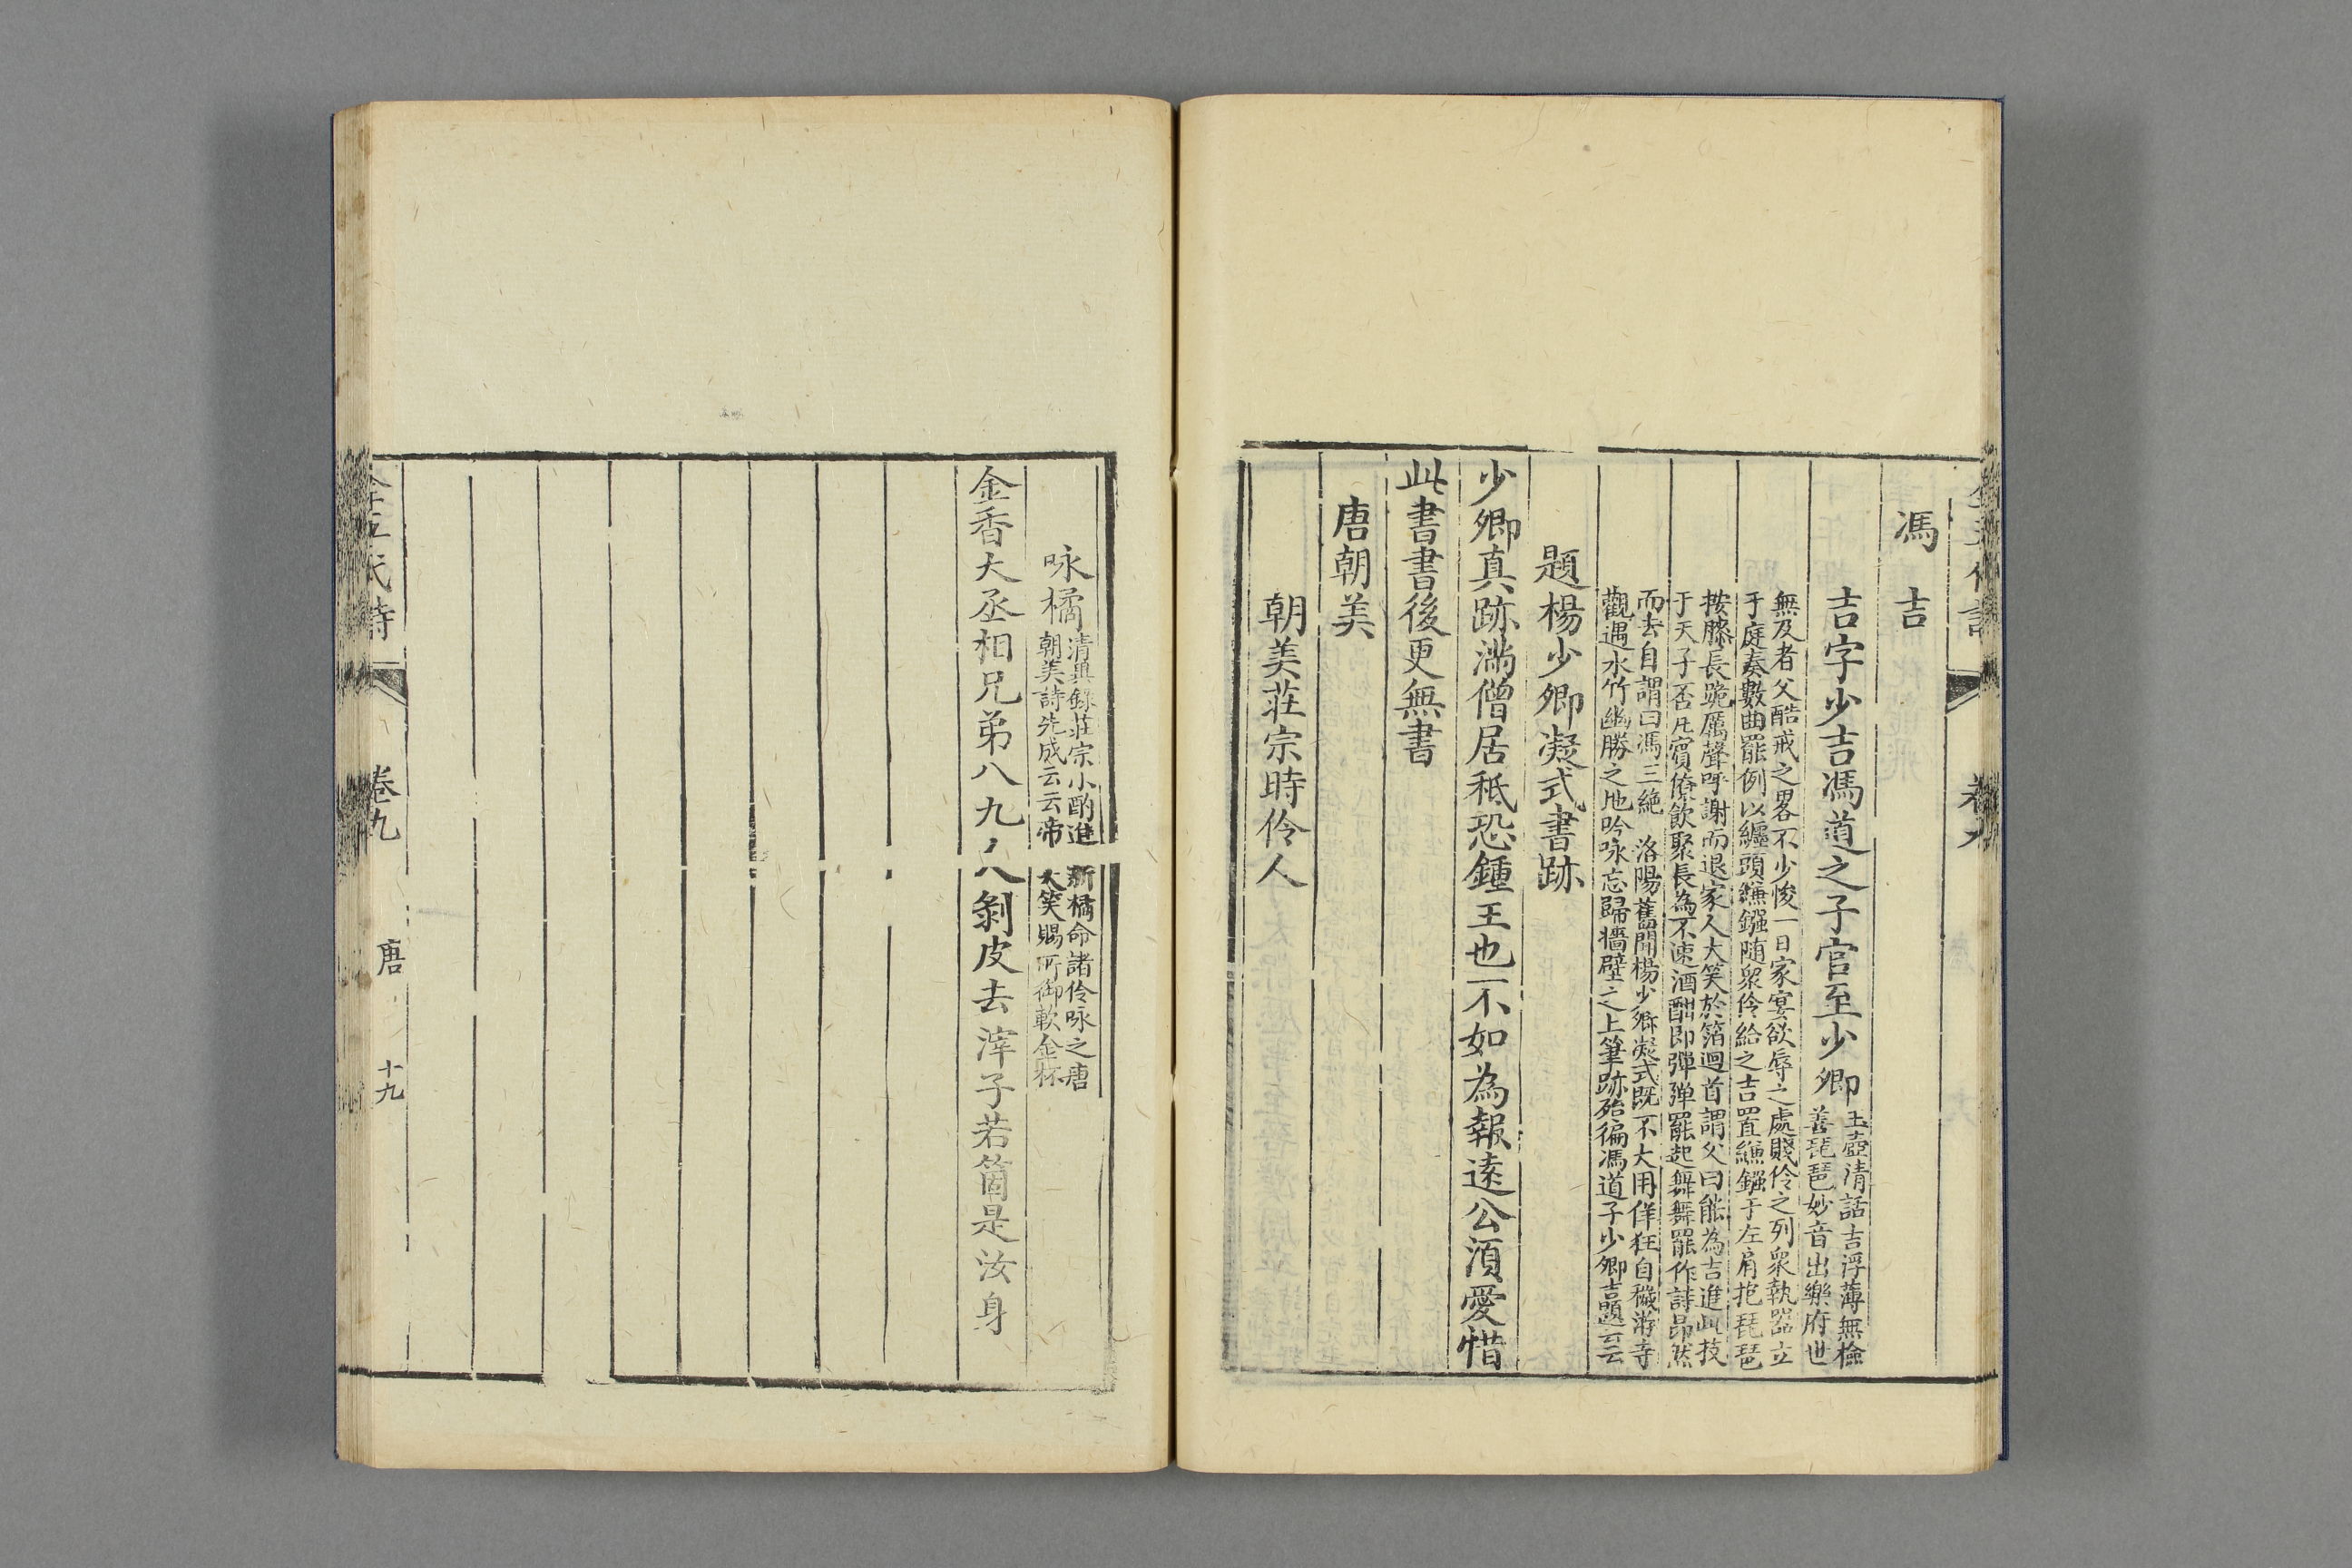 馮吉
吉字少吉馮道之子官至少卿
玉壺清話吉浮薄無檢
善琵琶妙音出樂府世
無及者父酷戒之畧不少悛一日家宴欲辱之處賤伶之列衆執器立
于庭奏數曲罷例以纏頭縑鏹隨衆伶給之吉置縑鏹于左肩抱琵琶
按膝長跪厲聲呼謝而退家人大笑於箔迴首謂父曰能為吉進此技
于天子否凡賓僚飲聚長為不速酒酣即彈彈罷起舞舞罷作詩昂然
而去自謂曰馮三絶　洛陽舊聞楊少卿凝式既不大用佯狂自穢游寺
觀遇水竹幽勝之地吟咏忘歸墻壁之上筆跡殆徧馮道子少卿吉題云云
題楊少卿凝式書跡
少卿真跡滿僧居秪恐鍾王也不如為報遠公須愛惜
此書書後更無書
唐朝美
朝美莊宗時伶人
咏橘
清異錄莊宗小酌進新橘命諸伶咏之唐
朝美詩先成云云帝大笑賜所御軟金杯
金香大丞相兄弟八九人剝皮去滓子若箇是汝身
卷九
唐
十九